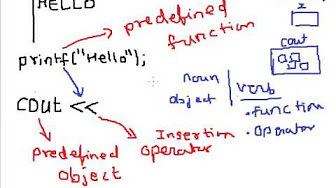 HELLO
predefined
function
x
printf("Hello");
cout
Noun
object
verb
• function
• operator
cout <<
Insertion
operator
predefined
object